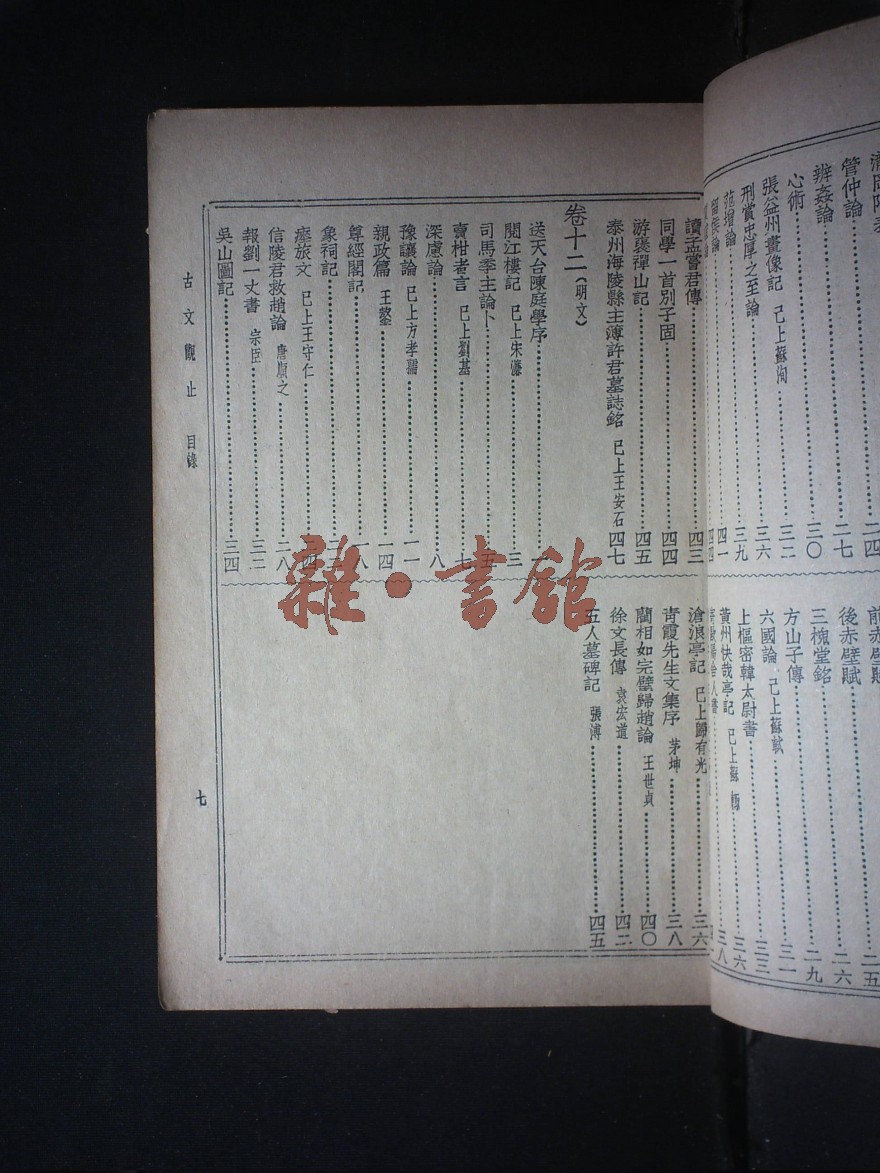 管仲論 二七
辨姦論 三〇
心術 三二
張益州畫像記 已上蘇洵 三六
刑賞忠厚之至論 三九
范增論 四一
後赤壁賦 二六
三槐堂銘 二九
方山子傳 三一
六國論 已上蘇軾 三三
上樞密韓太尉書 三六
黃州快哉亭記 已上蘇轍 三八
讀孟嘗君傳 四三
同學一首別子固 四四
游褒禪山記 四五
泰州海陵縣主簿許君墓誌銘 已上王安石 四七
卷十二（明文）
送天台陳庭學序 一
閱江樓記 已上朱濂 三
司馬季主論卜 五
賣柑者言 已上劉基 七
深慮論 八
豫讓論 已上方孝孺 一一
親政篇 王鏊 一四
尊經閣記 一八
象祠記
瘞旅文 已上王守仁
信陵君救趙論 唐順之 二八
報劉一丈書 宗臣 三二
吳山圖記 三四
滄浪亭記 已上歸有光 三六
青霞先生文集序 茅坤 三八
藺相如完璧歸趙論 王世貞 四〇
徐文長傳 袁宏道 四二
五人墓碑記 張溥 四五
古文觀止 目錄
七
雜·書館